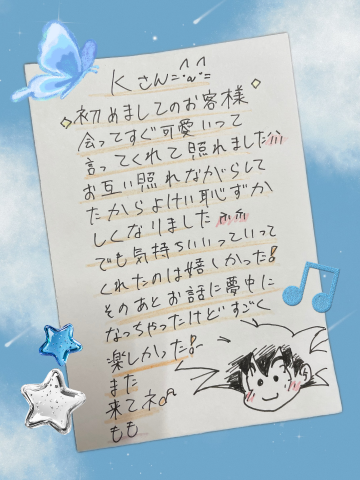 Kさん=^ω^=
初めましてのお客様
会ってすぐ可愛いって
言ってくれて照れました
お互い照れながらして
たからよけい恥ずか
しくなりました
でも気持ちいいっていって
くれたのは嬉しかった!
そのあとお話に夢中に
なっちゃったけどすごく
楽しかった!
また
来てネ
もも